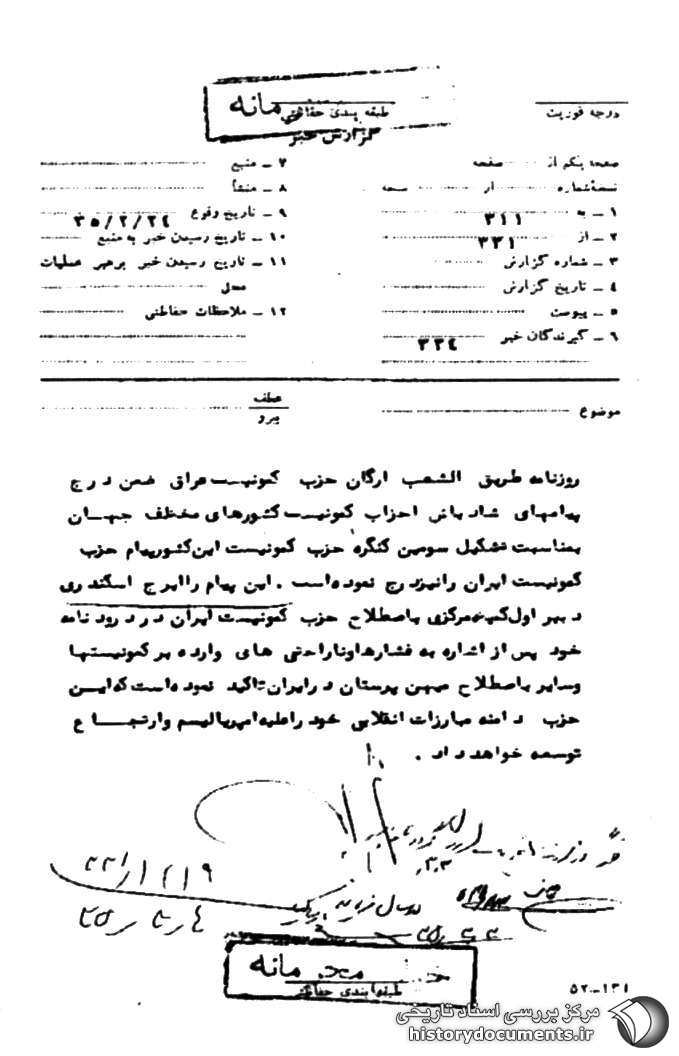 مانه
درجه فوریت
طبقه بندی حفاظتی
گزارش خبر
صفحه یکم از صفحه
نسخه شماره از نسخه
۱ ـ به ۳۱۱
۲ ـ از ۳۳۱
۳ ـ شماره گزارش
۴ ـ تاریخ گزارش
۵ ـ پیوست
۶ ـ گیرندگان خبر ۳۳٤
۷ ـ منبع
۸ ـ منشأ
۹ ـ تاریخ وقوع ۳۵/۲/۲٤
۱۰ ـ تاریخ رسیدن خبر به منبع
۱۱ ـ تاریخ رسیدن خبر برهبر عملیات
محل
۱۲ ـ ملاحظات حفاظتی
موضوع
عطف
پیرو
روزنامه طریق الشعب ارگان حزب کمونیست عراق ضمن درج
پیامهای شادباش احزاب کمونیست کشورهای مختلف جهان
بمناسبت تشکیل سومین کنگره حزب کمونیست این کشور پیام حزب
کمونیست ایران رانیز درج نموده است . این پیام را ایرج اسکندری
دبیر اول کمیته مرکزی باصطلاح حزب کمونیست ایران در درود نامه
خود پس از اشاره به فشارها و ناراحتی های وارده بر کمونیستها
وسایر باصطلاح میهن پرستان در ایران تاکید نموده است که این
حزب دامنه مبارزات انقلابی خود را علیه امپریالیسم وارتجاع
توسعه خواهد داد .
خیلی محرمانه
طبقه بندی حفاظتی
۵۲ـ۱۳۱
مرکز بررسی اسناد تاریخی
historydocuments.ir